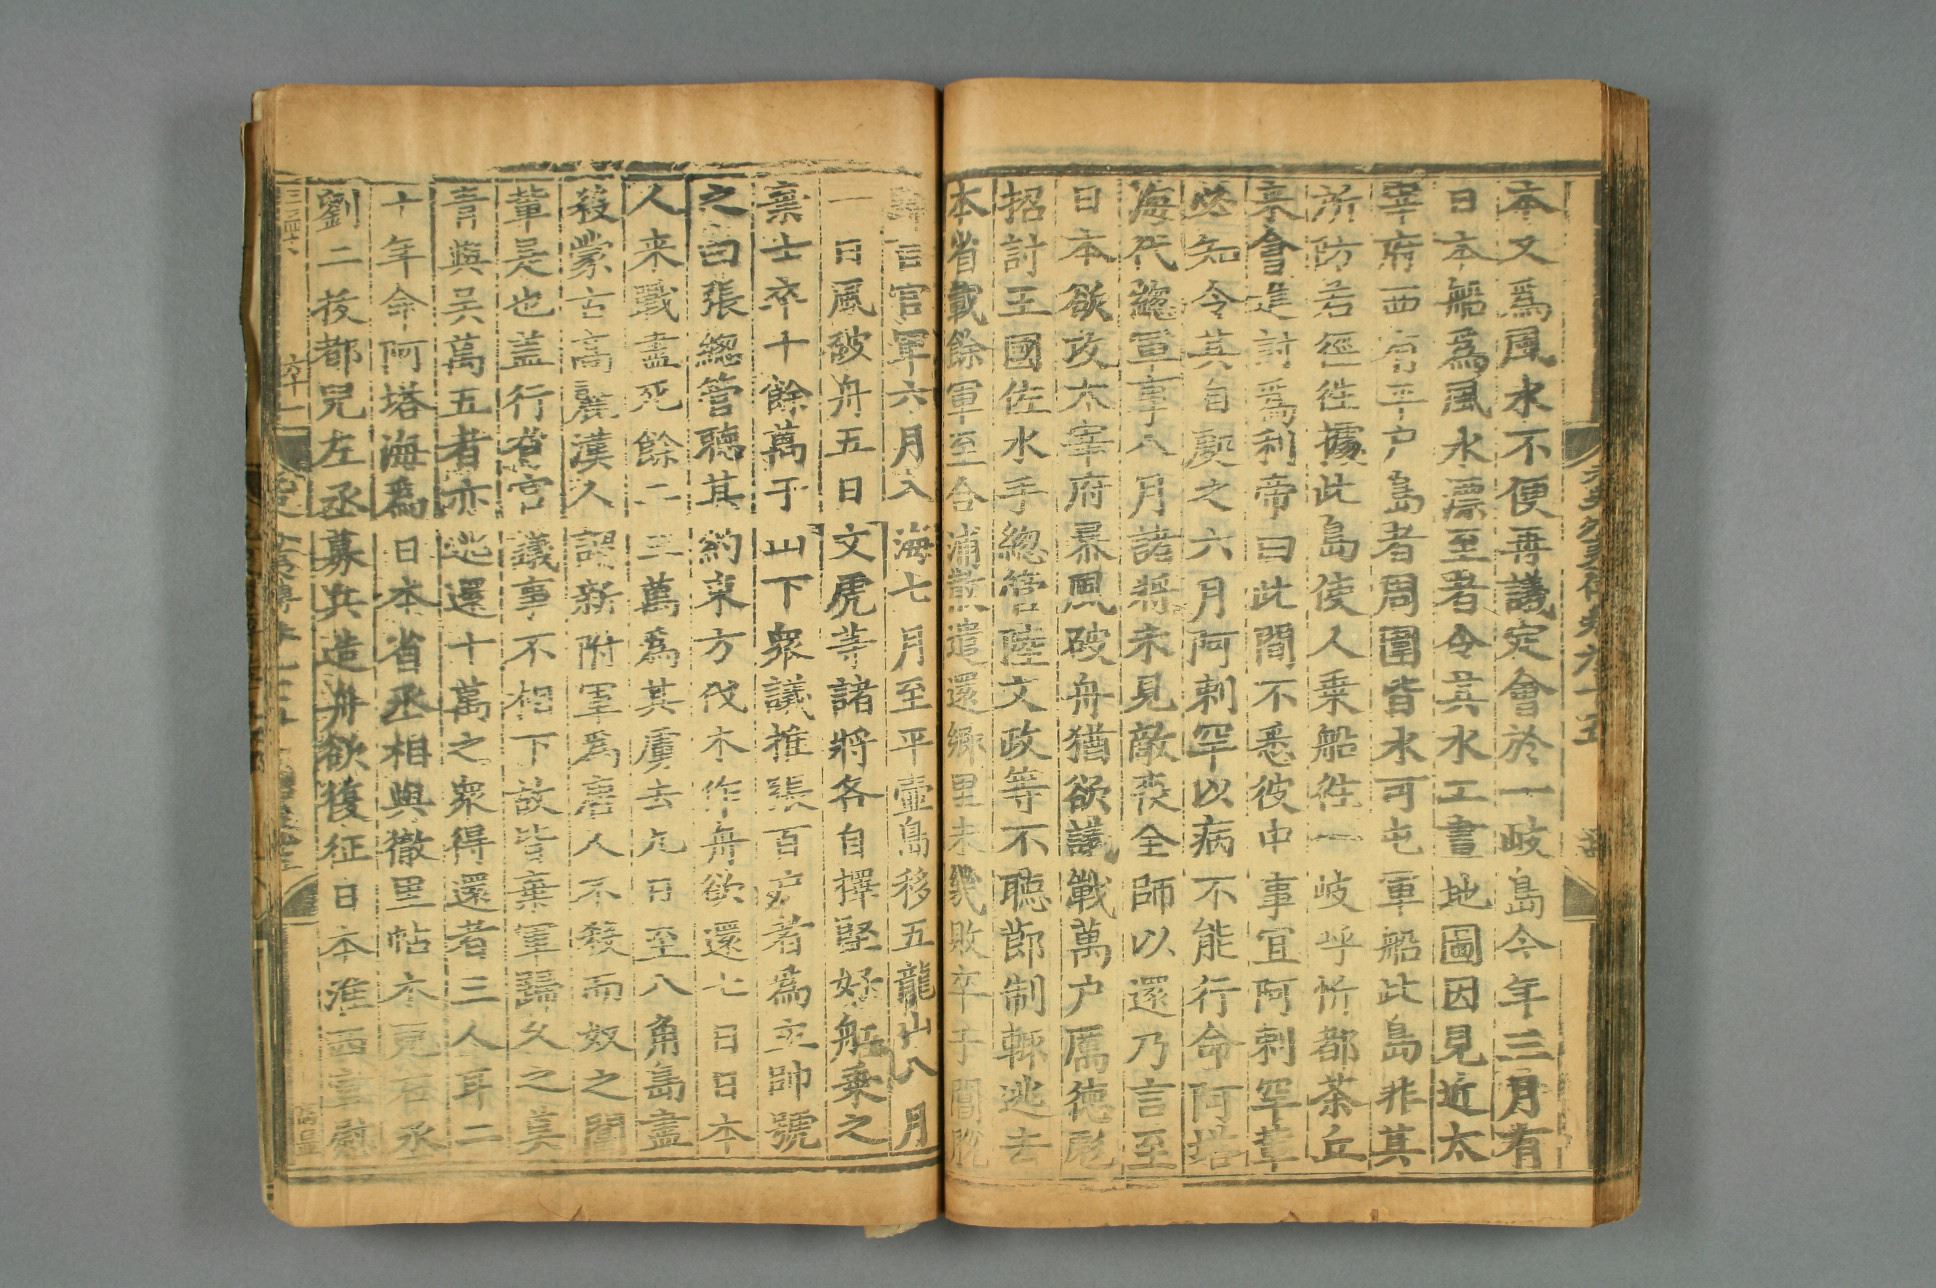 本又爲風水不便再議定會於一岐島今年三月有
日本船爲風水漂至者令其水工畫地圖因見近太
宰府西有平户島者周圍皆水可屯軍船此島非其
所防若徑往據此島使人乗船往一岐呼忻都茶丘
来會進討爲利帝曰此間不悉彼中事宜阿剌罕軰
必知令其自䖏之六月阿剌罕以病不能行命阿塔
海代總軍事八月諸將未見敵喪全師以還乃言至
日本欲攻太宰府暴風破舟猶欲議戰萬户厲德彪
招討王國佐水手總管陸文政等不聽節制輙逃去
本省載餘軍至合浦散遣還鄉里未幾敗卒于閶脫
歸言官軍六月入海七月至平壷島移五龍山八月
一日風破舟五日文虎等諸將各自擇堅好船乗之
棄士卒十餘萬于山下衆議推張百户者爲主帥號
之曰張總管聽其約束方伐木作舟欲還七日日本
人来戰盡死餘二三萬爲其虜去九日至八角島盡
殺蒙古高麗漢人謂新附軍爲唐人不殺而奴之閶
軰是也盖行省官議事不相下故皆棄軍歸久之莫
青與吴萬五者亦逃還十萬之衆得還者三人耳二
十年命阿塔海爲日本省丞相與徹里帖木兒右丞
劉二㧞都兒左丞募兵造舟欲復征日本淮西宣慰